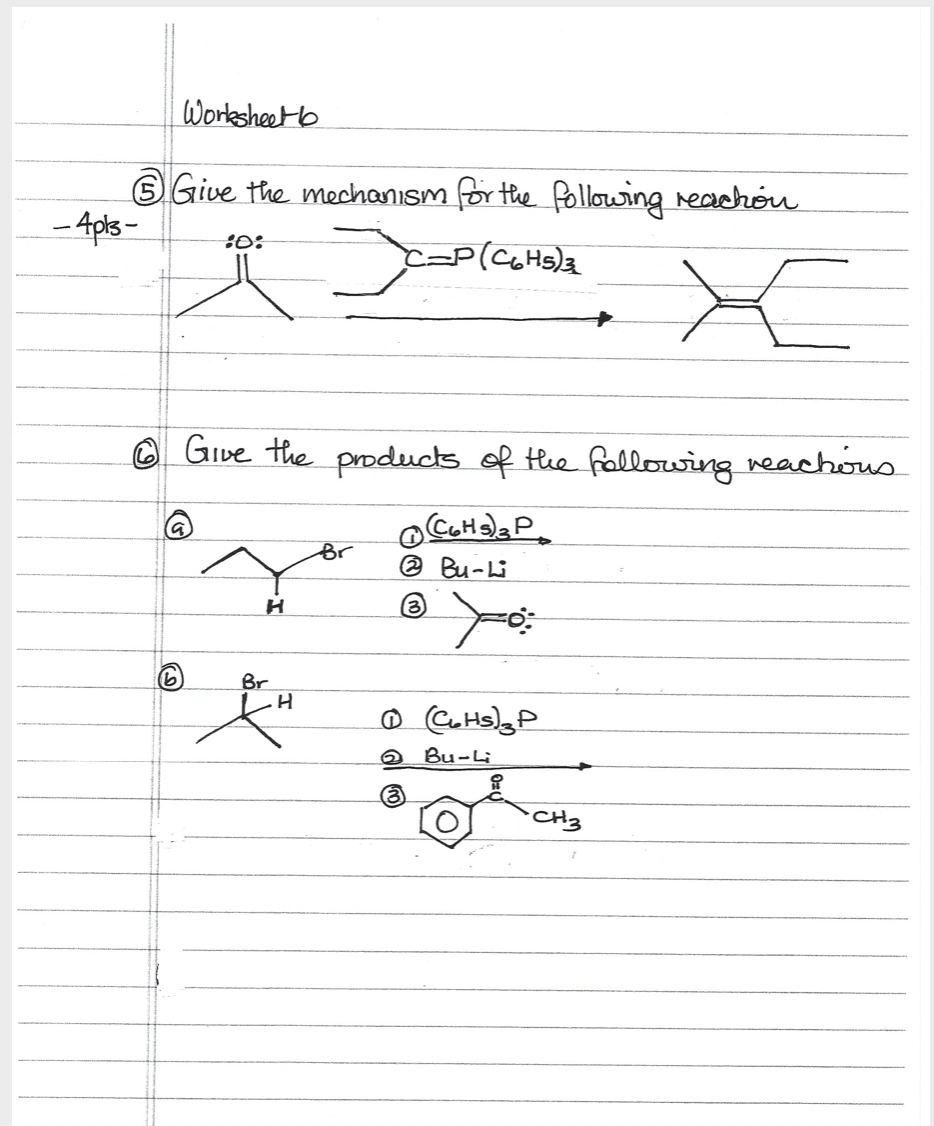 Worksheet 6
⑤ Give the mechanism for the following reaction
- 4pts -
:O:
C=P(C6H5)3
⑥ Give the products of the following reactions
ⓐ
Br
H
① (C6H5)3P
② Bu-Li
③
=O:
ⓑ
Br
H
① (C6H5)3P
② Bu-Li
③
O
C
CH3